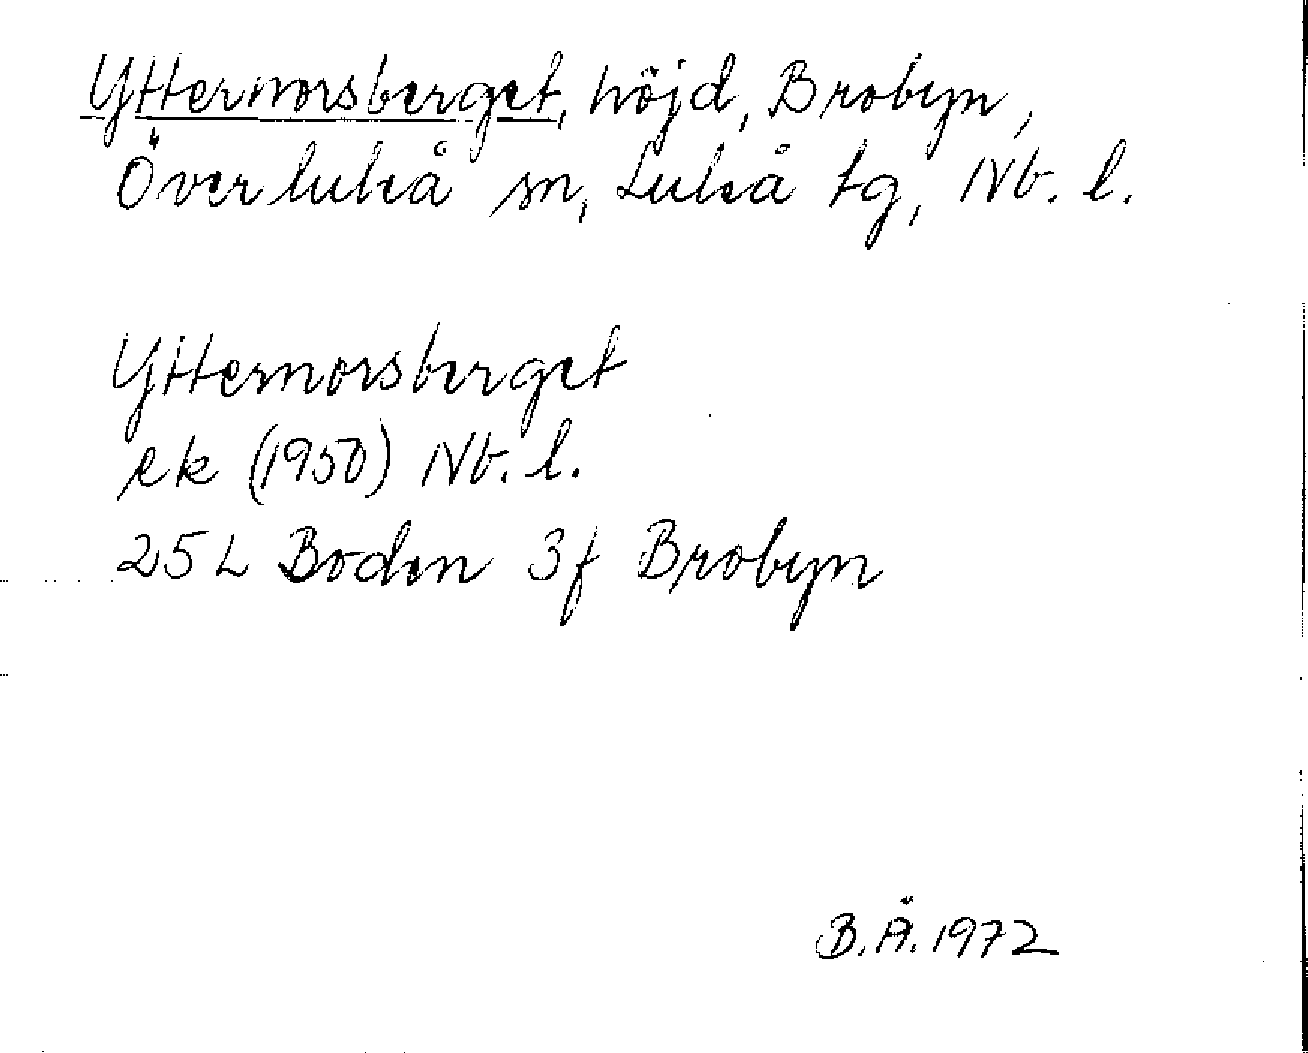 Yttermorsberget, höjd, Brobyn,
Överluleå sn, Luleå tg, Nb. l.
Yttermorsberget
ek (1950) Nb. l.
25 L Boden 3f Brobyn
B.Ä. 1972